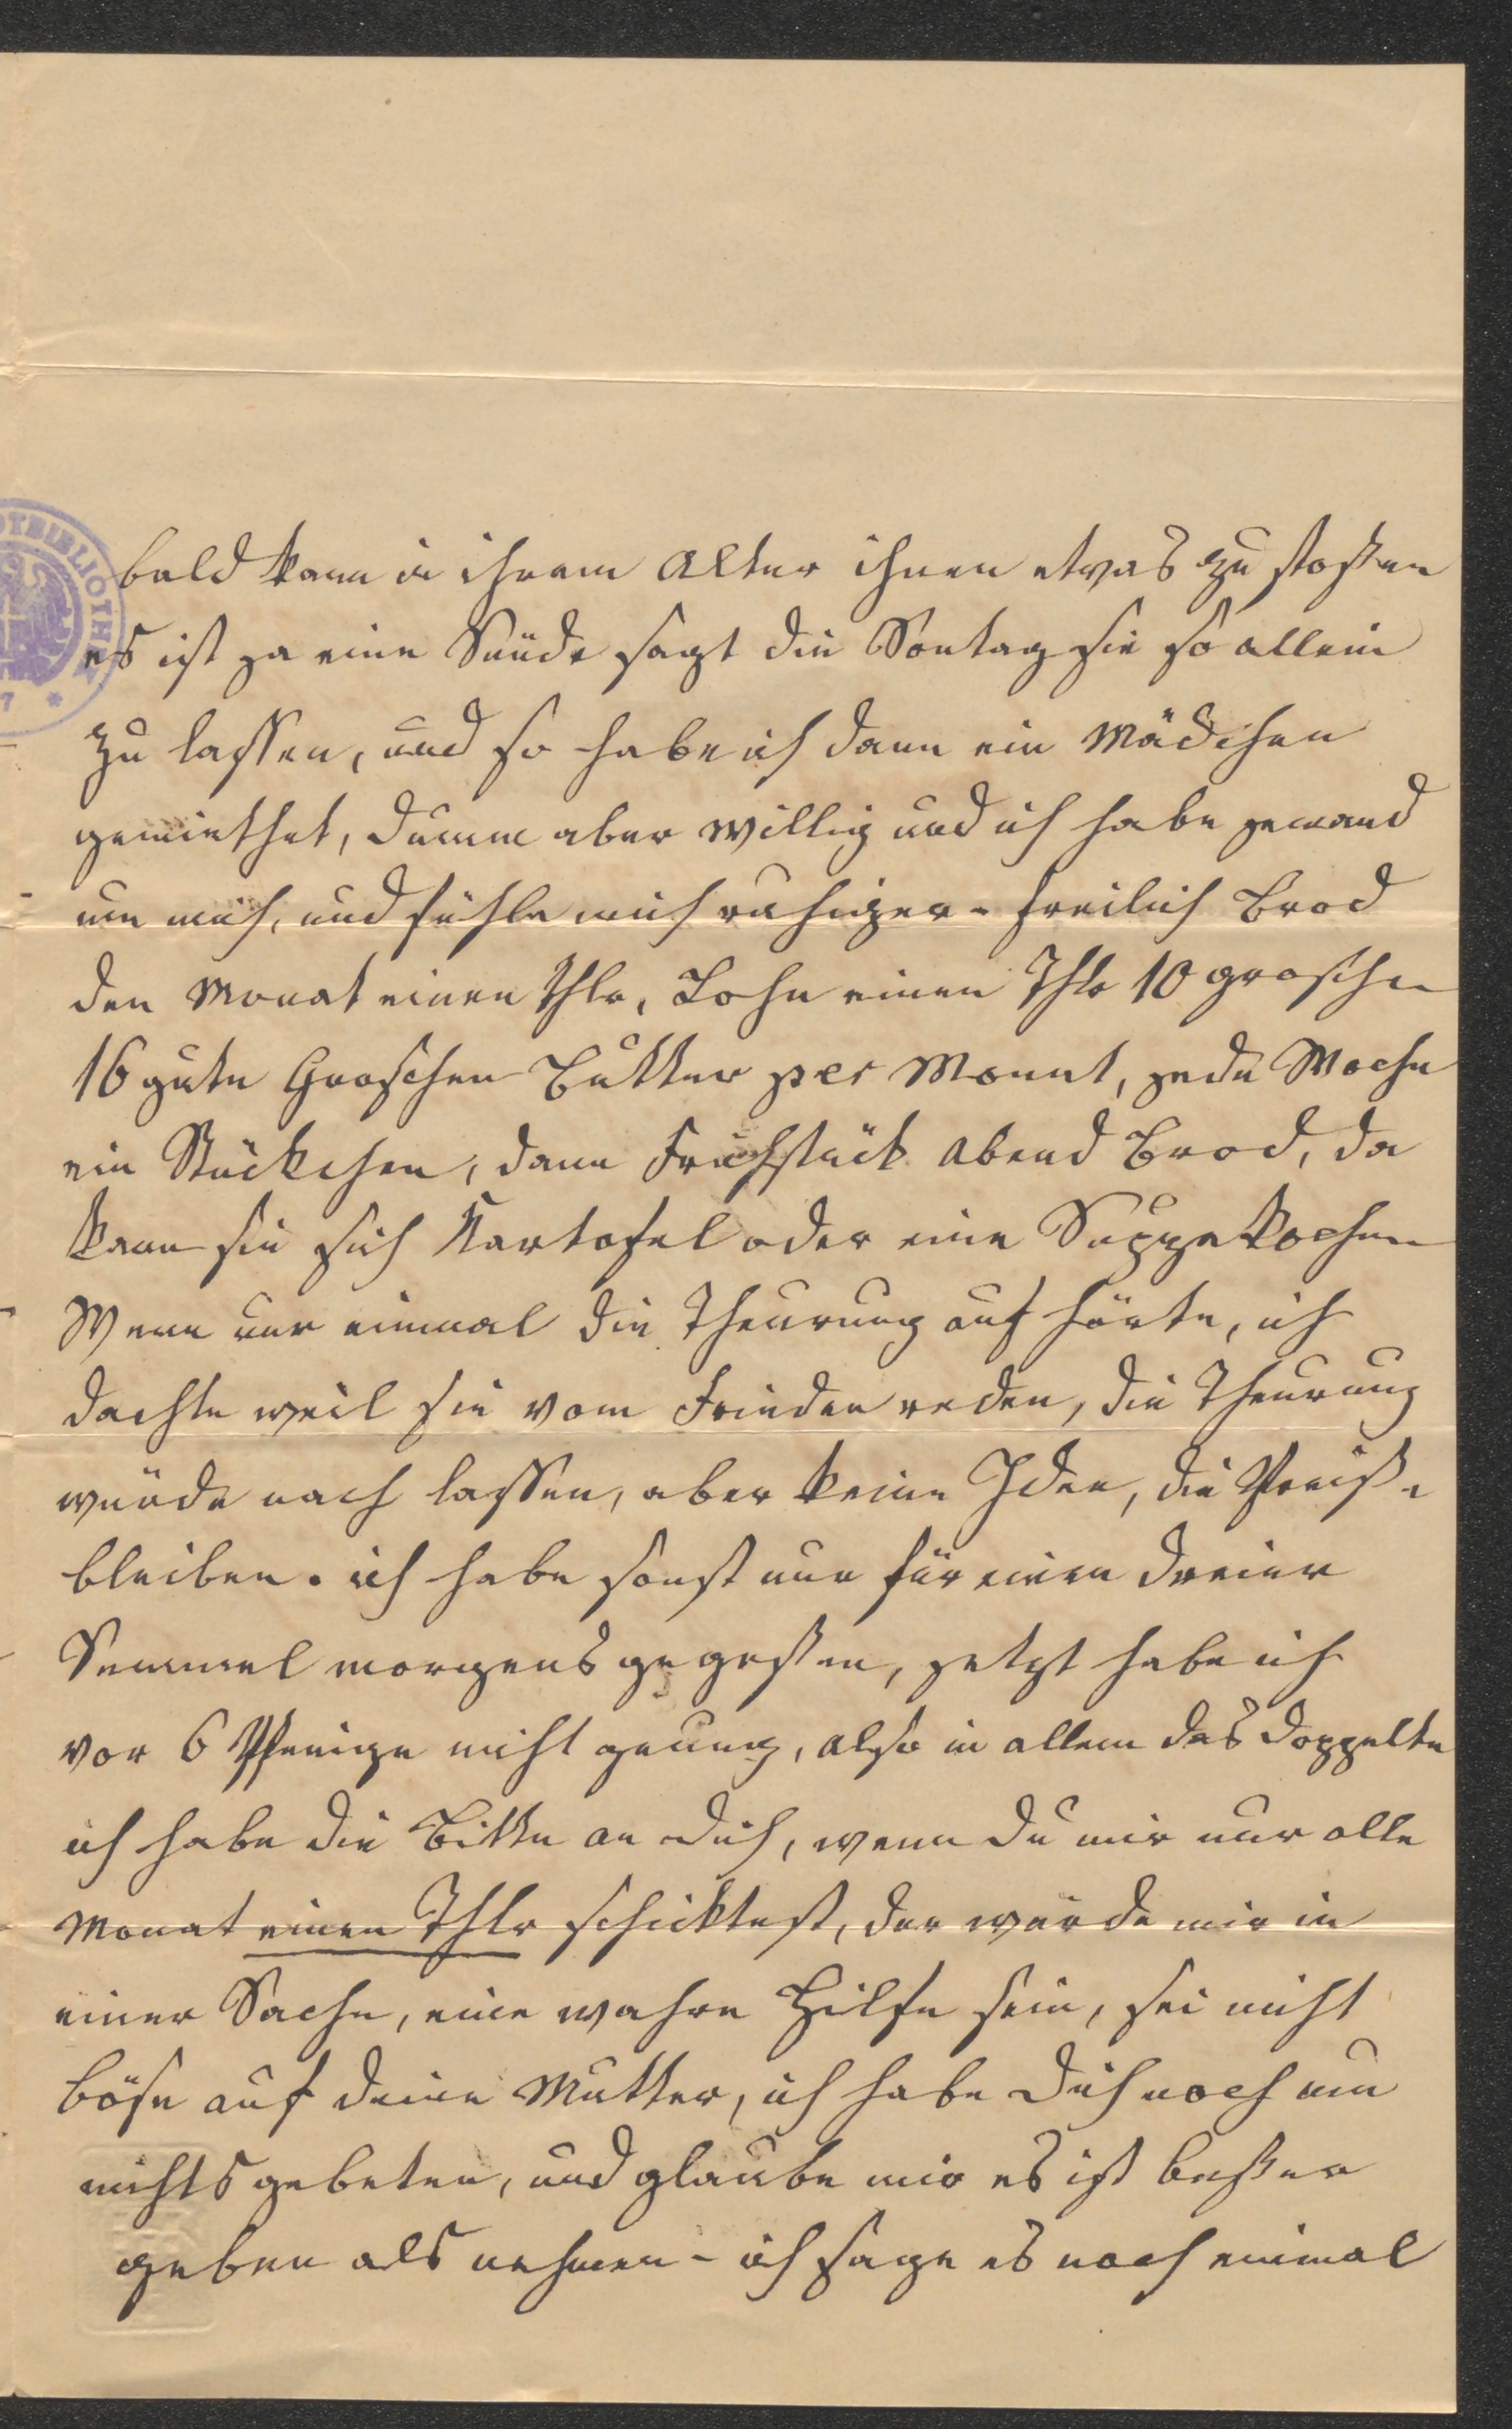 bald kann in ihrem Alter ihnen etwas zu stoßen
es ist ja eine Sünde sagt die Sontag sie so allein
zu lassen, und so habe ich dann ein Mädchen
gemiethet, dumm aber willig und ich habe jemand
um mich, und fühle mich ruhiger - freilich Brod
den Monat einen Thlr, Lohn einen Thlr 10 groschen
16 gute Groschen Butter per Monat, jede Woche
ein Stückchen, dann Frühstück Abend Brod, da
kann sie sich Kartofel oder eine Suppe kochen
Wenn nur einmal die Theurung auf hörte, ich
dachte weil sie vom Frieden reden, die Theurung
würde nach lassen, aber keine Idee, die Preise
bleiben. ich habe sonst nur für einen dreier
Semmel morgens gegeßen, jetzt habe ich
vor 6 Pfenige nicht genung, also in allem das doppelte
ich habe die Bitte an dich, wenn du mir nur alle
Monat einen Thlr schicktest, der würde mir in
einer Sache, eine wahre Hilfe sein, sei nicht
böse auf deine Mutter, ich habe dich noch um
nichts gebeten, und glaube mir es ist beßer
geben als nehmen - ich sage es noch einmal
OTBIBLIOTHEK
7 *